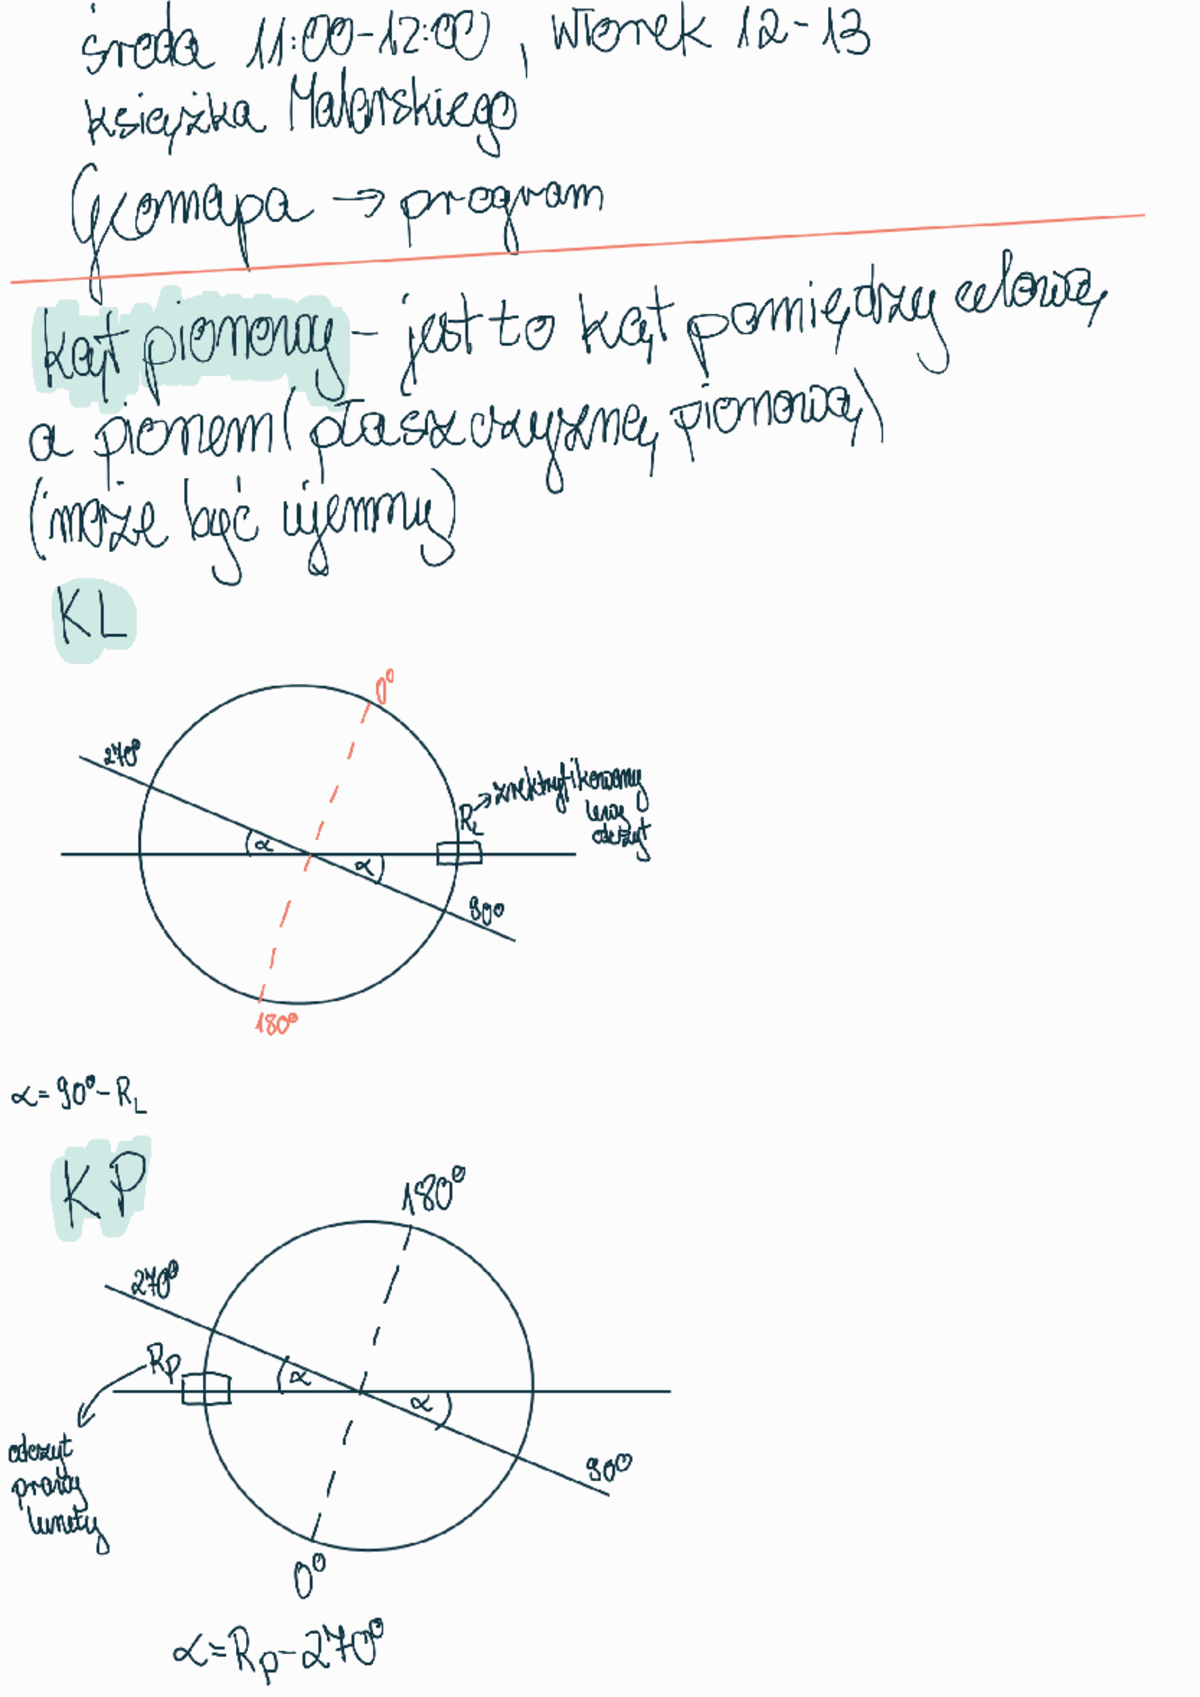 środa 11:00-12:00, wtorek 12-13
książka Malarskiego
Geomapa → program
kąt pionowy - jest to kąt pomiędzy celową
a pionem (płaszczyzną pionową)
(może być ujemny)
KL
0°
270°
R_L → zrektyfikowany
lewy
odczyt
α
α
90°
180°
α = 90° - R_L
KP
180°
270°
R_P
α
α
odczyt
prawy
lunety
90°
0°
α = R_P - 270°